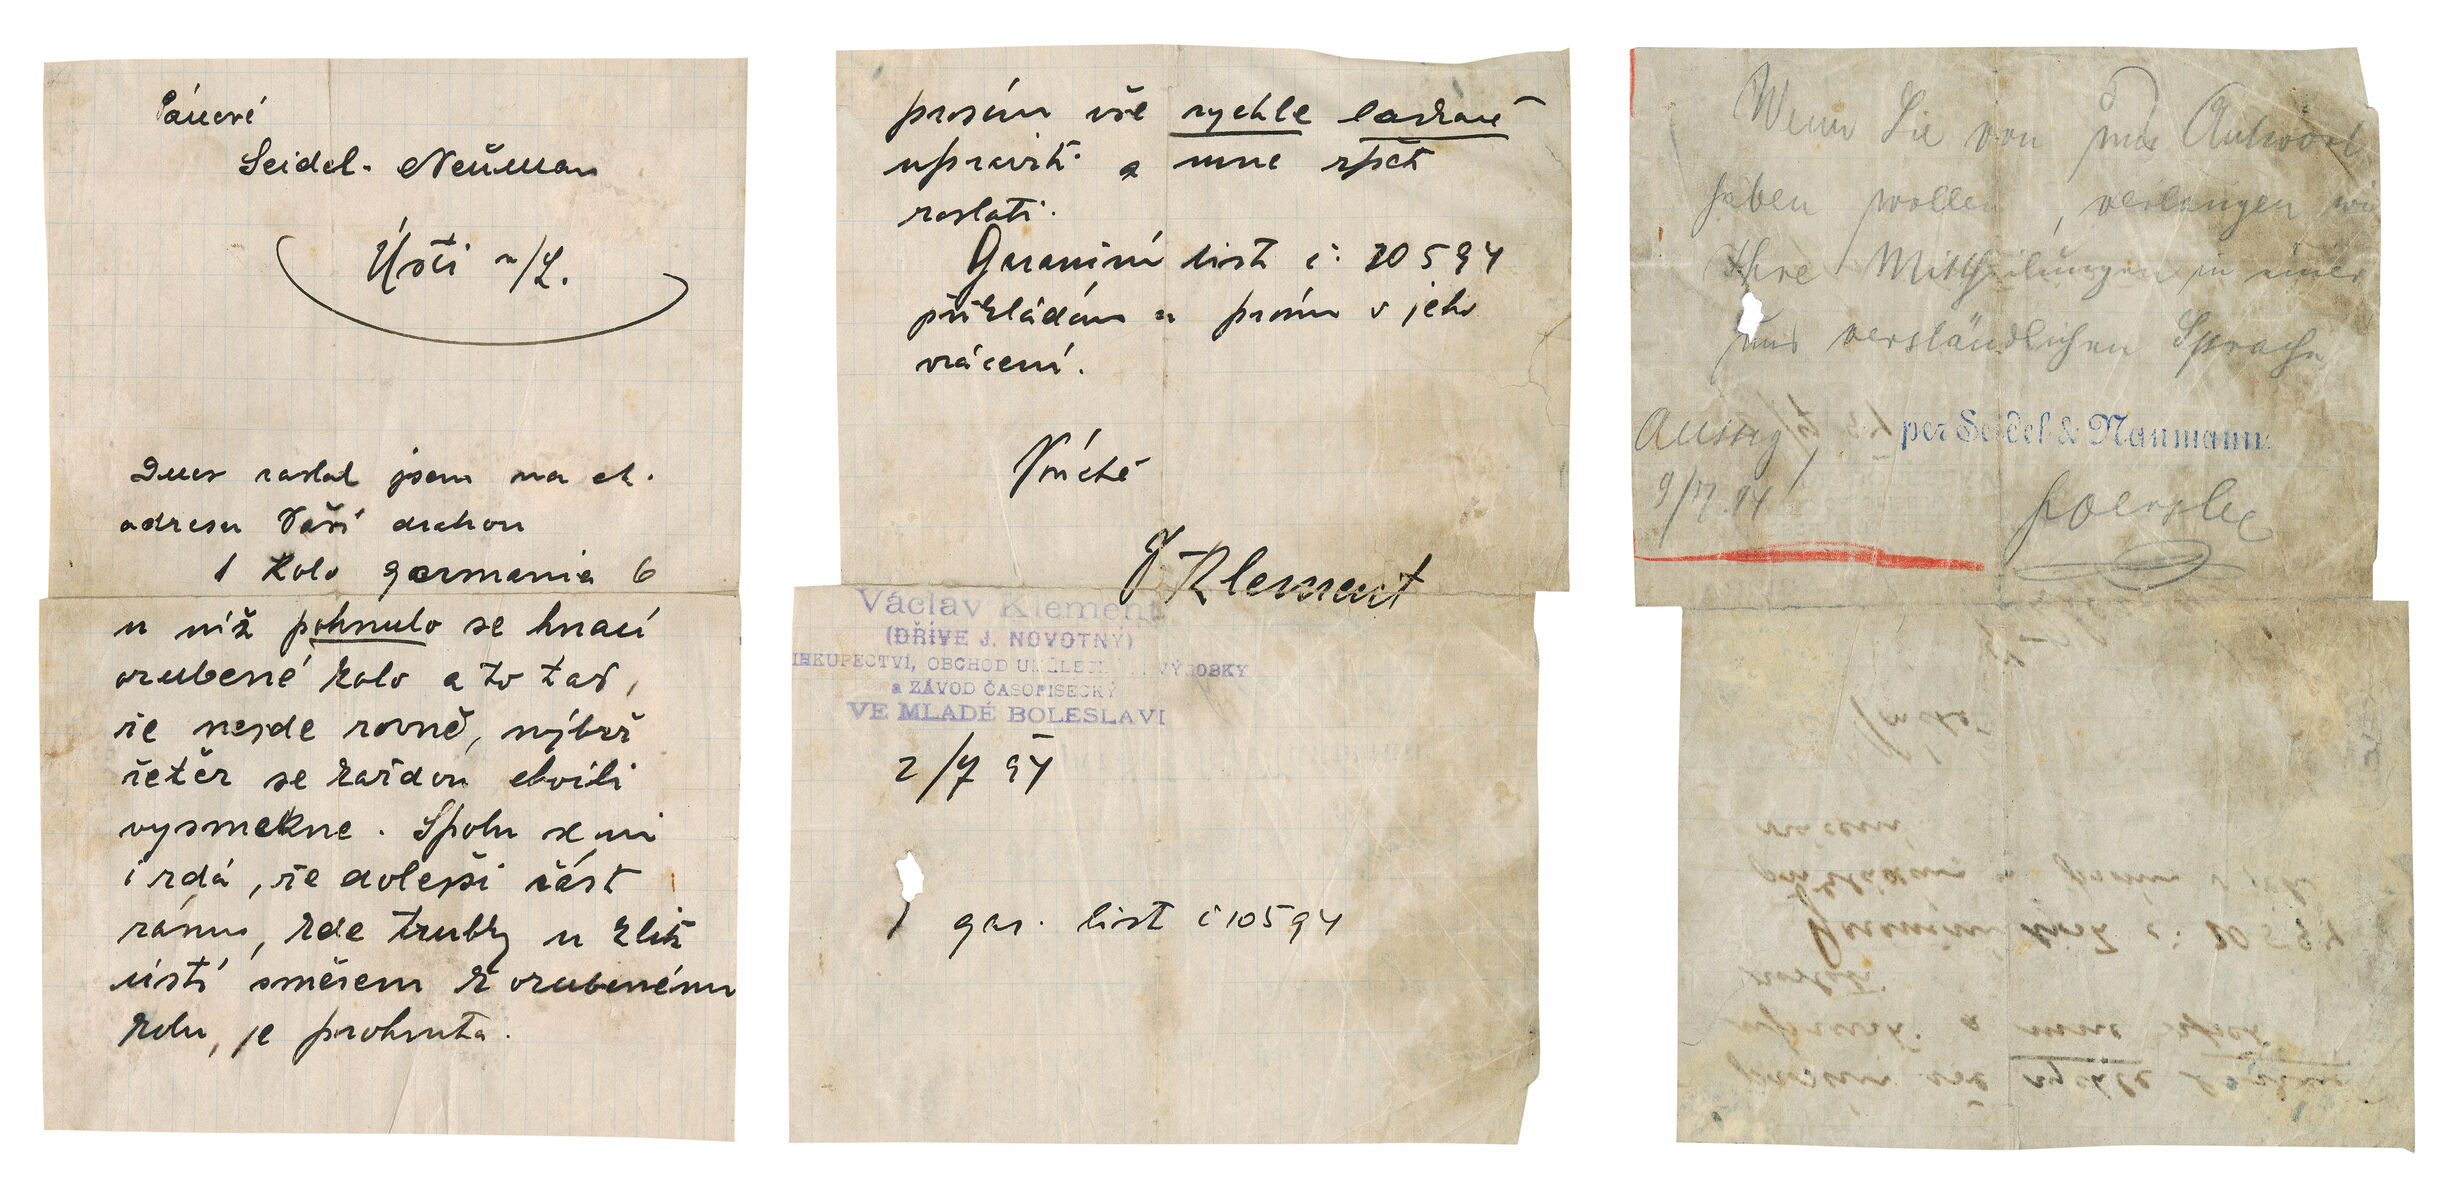 Pánové
Seidel - Neüman
Ústí n/L.
Dnes zaslal jsem na ct.
adresu Vaší drahou
1 kolo germania 6
u níž pohnulo se hnací
ozubené kolo a to tak,
že nejde rovně, nýbrž
řetěz se každou chvíli
vysmekne. Spolu se mi
i zdá, že dolejší část
rámu, kde trubky u klik
ústí směrem k ozubenému
kolu, je prohnuta.
prosím vše rychle laskavě
upraviti a mne zpět
zaslati.
Garanční list č: 10594
přikládám a prosím o jeho
vrácení.
V úctě
V Klement
Václav Klement
(DŘÍVE J. NOVOTNÝ)
IHKUPECTVÍ, OBCHOD UMĚLECK VÝROBKY
a ZÁVOD ČASOPISECKÝ
VE MLADÉ BOLESLAVI
2/7 94
1 gar. list č 10594
Wenn Sie von uns Antwort
haben wollen, verlangen wir
Ihre Mittheilungen in einer
uns verständlichen Sprache
Aussig
per Seidel & Naumann
9/7.94